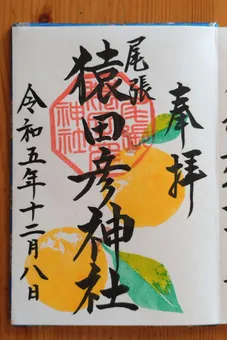 奉拝
尾張
猿田彦神社
令和五年十二月八日